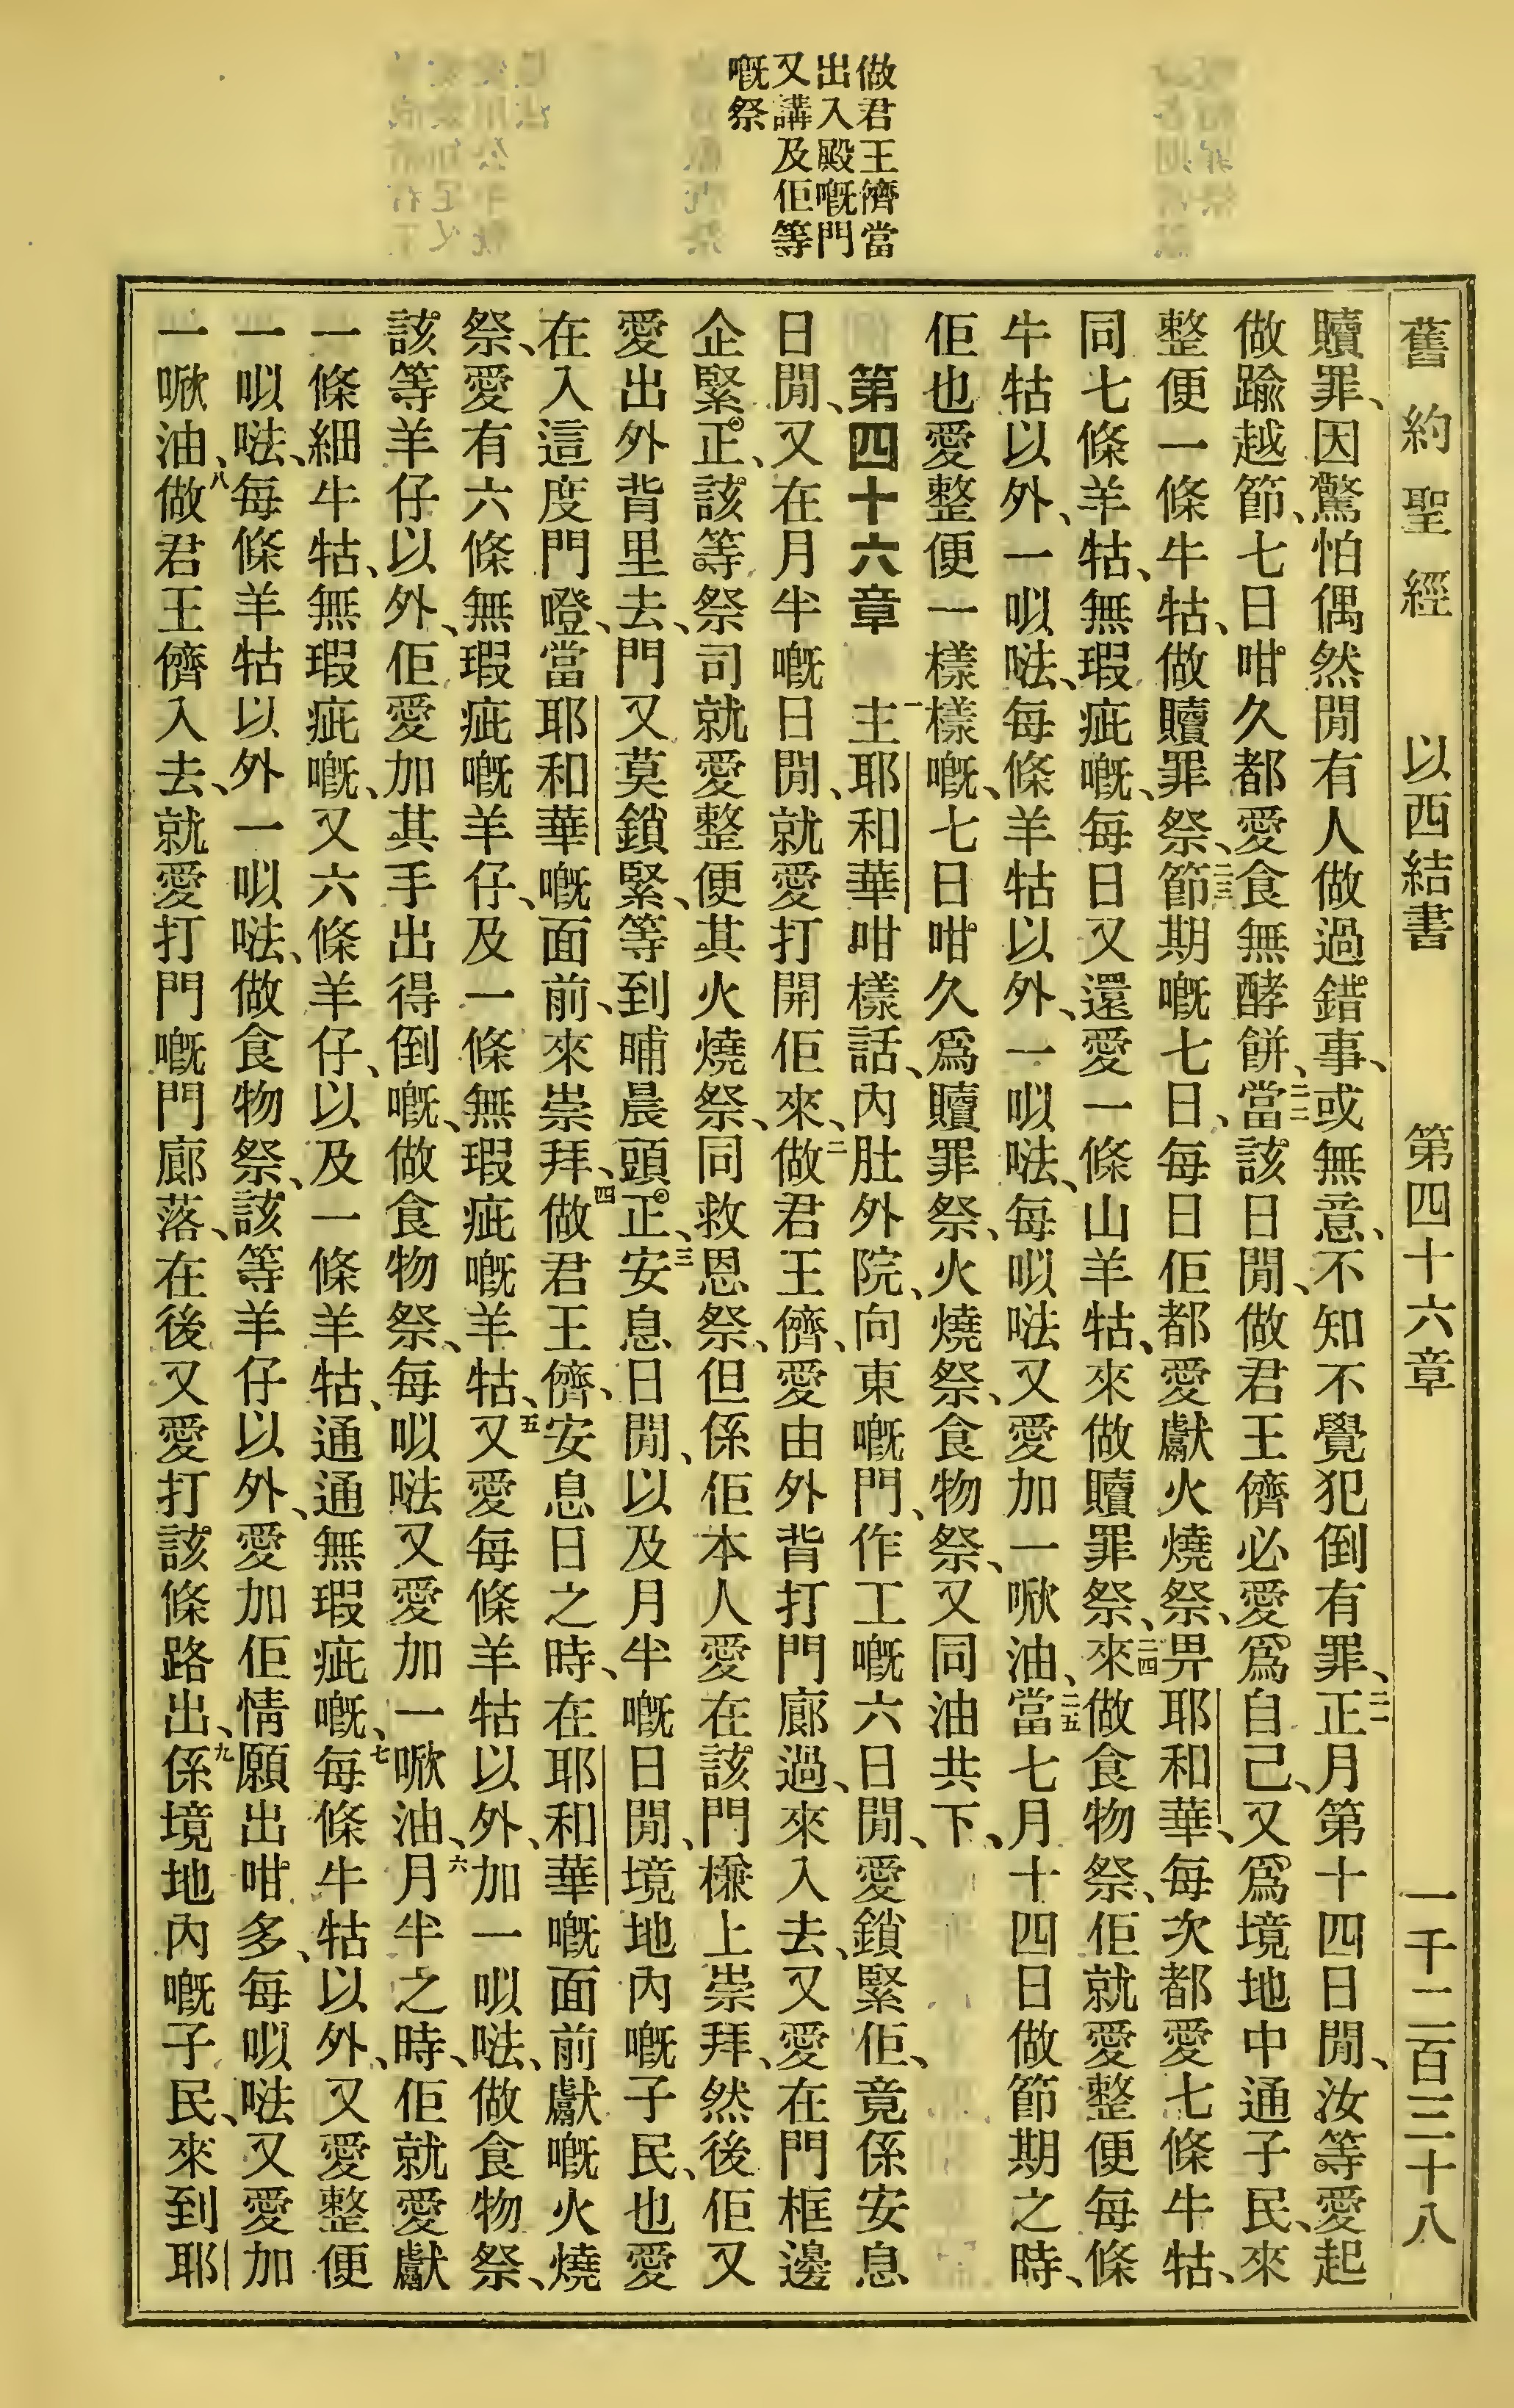 舊約聖經　以西結書　第四十六章　一千二百三十八
做君王儕當
出入殿嘅門
又講及佢等
嘅祭
贖罪、因驚怕偶然閒有人做過錯事、或無意、不知不覺犯倒有罪、二一正月第十四日閒、汝等愛起
做踰越節、七日咁久都愛食無酵餅、二二當該日閒、做君王儕必愛爲自己、又爲境地中通子民、來
整便一條牛牯、做贖罪祭、二三節期嘅七日、每日佢都愛獻火燒祭、畀耶和華、每次都愛七條牛牯、
同七條羊牯、無瑕疵嘅、每日又還愛一條山羊牯、來做贖罪祭、二四來做食物祭、佢就愛整便每條
牛牯以外、一㕥㖠、每條羊牯以外、一㕥㖠、每㕥㖠又愛加一㗀油、二五當七月十四日做節期之時、
佢也愛整便一樣樣嘅、七日咁久爲贖罪祭、火燒祭、食物祭、又同油共下、
第四十六章　一主耶和華咁樣話、內肚外院、向東嘅門、作工嘅六日閒、愛鎖緊佢、竟係安息
日閒、又在月半嘅日閒、就愛打開佢來、二做君王儕、愛由外背打門廊過、來入去、又愛在門框邊
企緊正、該等祭司就愛整便其火燒祭、同救恩祭、但係佢本人愛在該門檻上崇拜、然後佢又
愛出外背里去、門又莫鎖緊、等到晡晨頭正、三安息日閒、以及月半嘅日閒、境地內嘅子民、也愛
在入這度門嶝、當耶和華嘅面前、來崇拜、四做君王儕、安息日之時、在耶和華嘅面前獻嘅火燒
祭、愛有六條無瑕疵嘅羊仔、及一條無瑕疵嘅羊牯、五又愛每條羊牯以外、加一㕥㖠、做食物祭、
該等羊仔以外、佢愛加其手出得倒嘅、做食物祭、每㕥㖠又愛加一㗀油、六月半之時、佢就愛獻
一條細牛牯、無瑕疵嘅、又六條羊仔、以及一條羊牯、通通無瑕疵嘅、七每條牛牯以外、又愛整便
一㕥㖠、每條羊牯以外一㕥㖠、做食物祭、該等羊仔以外、愛加佢情願出咁多、每㕥㖠又愛加
一㗀油、八做君王儕入去、就愛打門嘅門廊落、在後又愛打該條路出、九係境地內嘅子民、來到耶